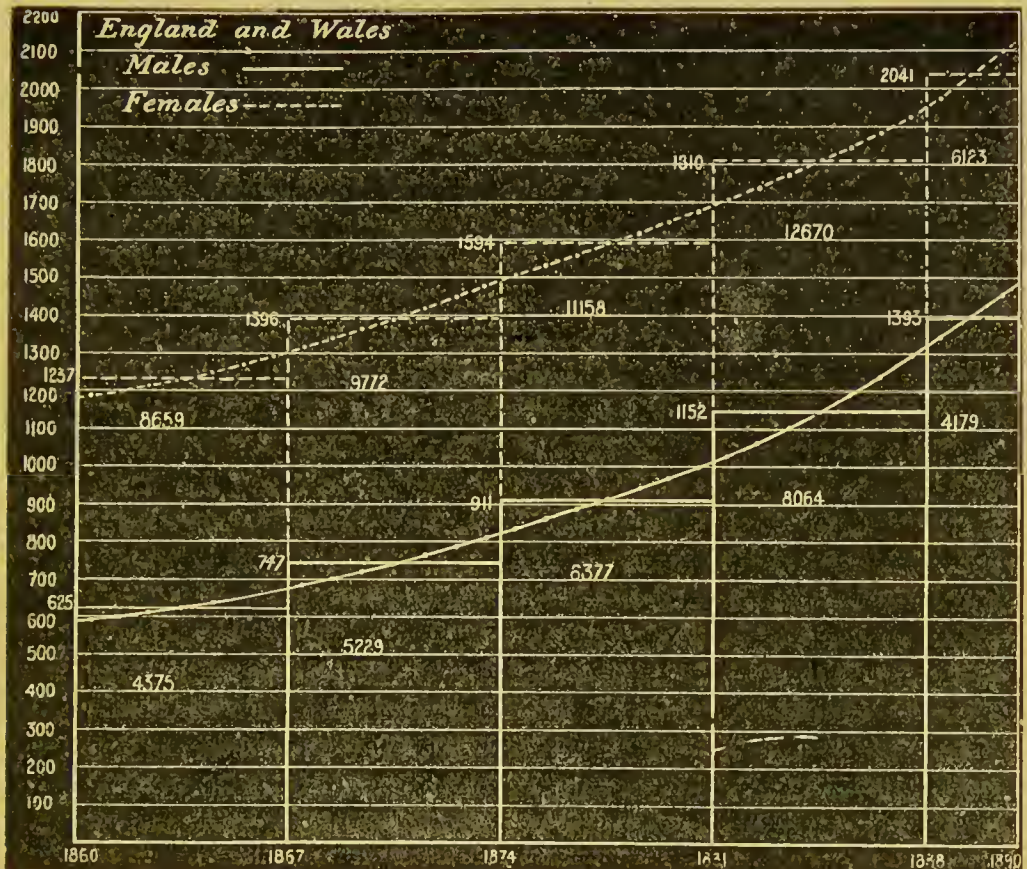 England and Wales
Males
Females
2200
2100
2000
1900
1800
1700
1600
1500
1400
1300
1237
1200
1100
1000
900
800
700
625
600
500
400
300
200
100
2041
1310
6123
12670
1594
11158
1396
1393
9772
8659
1152
4179
911
8064
747
6377
5229
4375
1860 1867 1874 1831 1838 1890